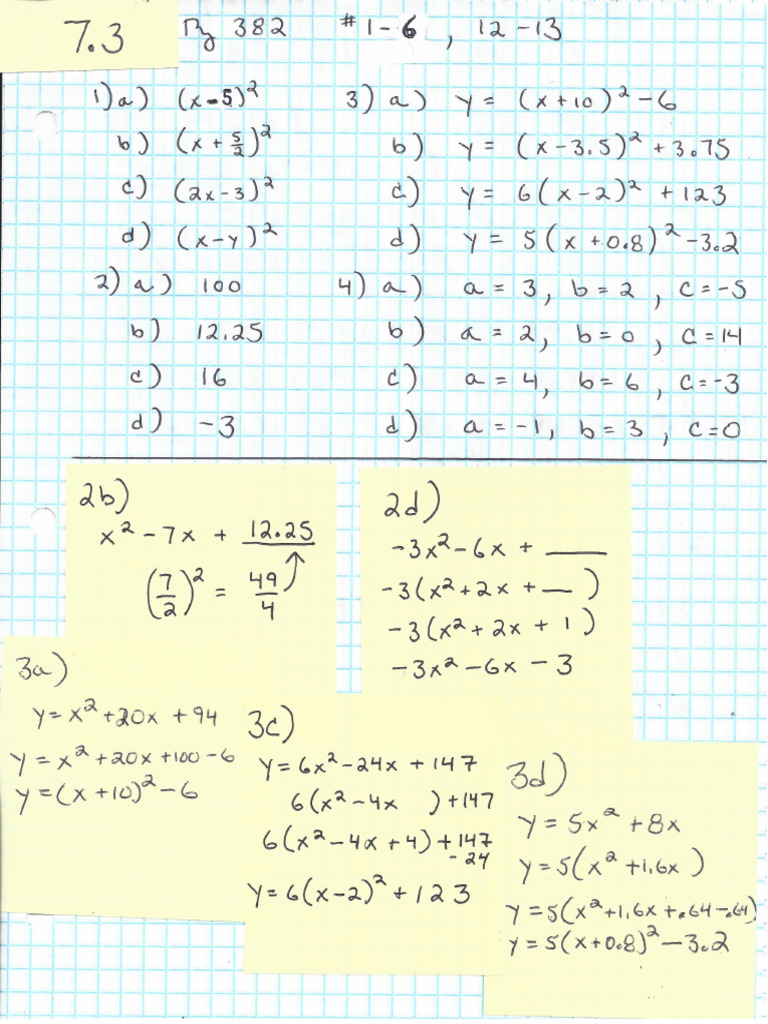 7.3 Pg 382 # 1-6, 12-13
1) a) (x-5)²
b) (x + 5/2)²
c) (2x-3)²
d) (x-y)²
2) a) 100
b) 12.25
c) 16
d) -3
3) a) y = (x+10)² -6
b) y = (x-3.5)² +3.75
c) y = 6(x-2)² +123
d) y = 5(x+0.8)² -3.2
4) a) a = 3, b = 2, c = -5
b) a = 2, b = 0, c = 14
c) a = 4, b = 6, c = -3
d) a = -1, b = 3, c = 0
2b)
x² - 7x + 12.25
(7/2)² = 49/4
2d)
-3x² - 6x + ___
-3(x² + 2x + __ )
-3(x² + 2x + 1)
-3x² - 6x - 3
3a)
y = x² + 20x + 94
y = x² + 20x + 100 - 6
y = (x + 10)² - 6
3c)
y = 6x² - 24x + 147
6(x² - 4x ) + 147
6(x² - 4x + 4) + 147
- 24
y = 6(x-2)² + 123
3d)
y = 5x² + 8x
y = 5(x² + 1.6x )
y = 5(x² + 1.6x + .64 - .64)
y = 5(x + 0.8)² - 3.2